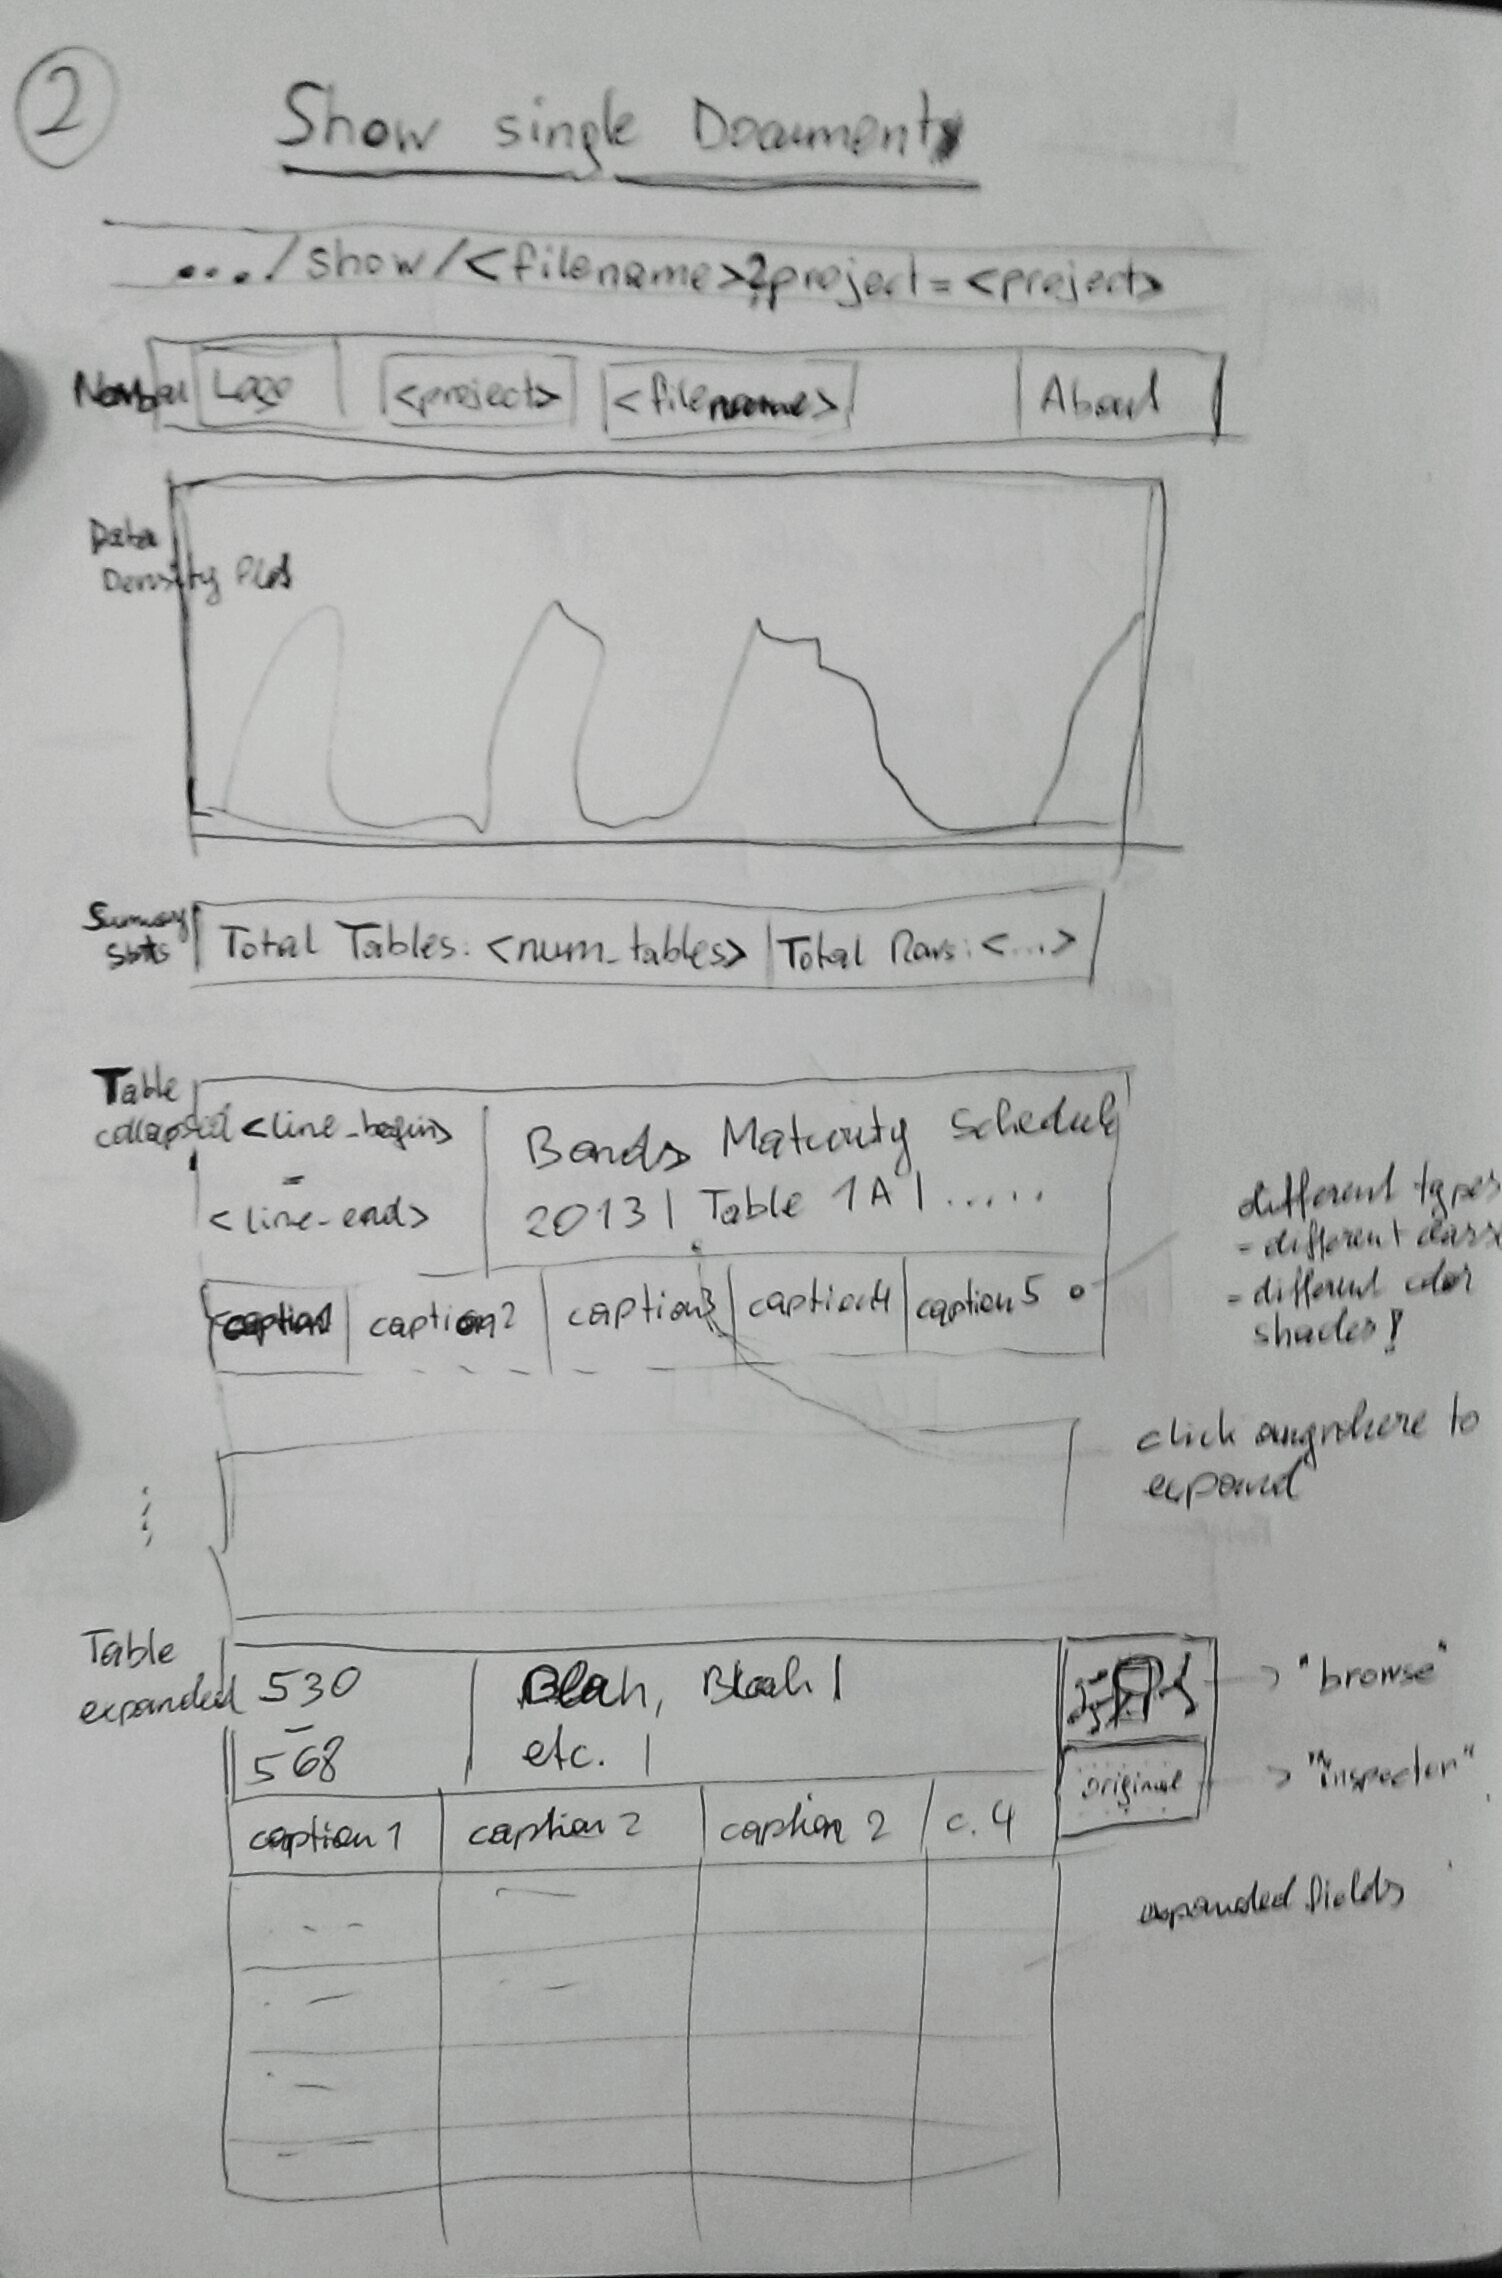 2
Show single Document
.../show/<filename>?project=<project>
Navbar
Logo
<project>
<filename>
About
Data
Density Plot
Summary
Stats
Total Tables: <num_tables> | Total Rows: <...>
Table
collapsed
<line_begin>
-
<line_end>
Bonds Maturity Schedule
2013 | Table 1A | .....
caption1
caption2
caption3
caption4
caption5
different types
- different
- different color
shades!
click anywhere to
expand
Table
expanded
530
-
568
Blah, Blah |
etc. |
"browse"
original
"inspector"
caption 1
caption 2
caption 2
c. 4
expanded fields